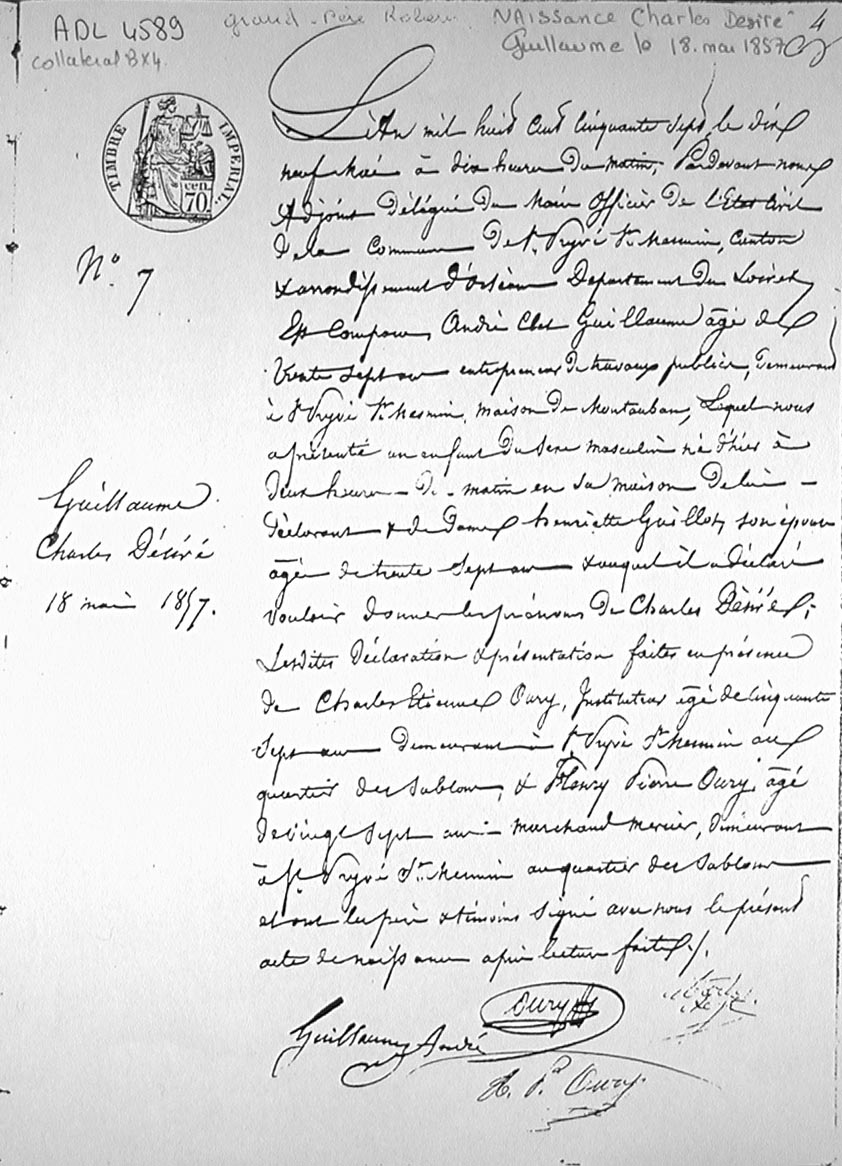 ADL 4589 grand-père NAISSANCE Charles Desiré 4
collateral 8X4 Guillaume le 18. mai 1857
TIMBRE IMPERIAL.
cen. 70
L'An mil huit cent cinquante sept le dix
neuf Mai à dix heures du matin, Pardevant nous
Adjoint Délégué du Maire Officier De l'Etat Civil
De la Commune De St Pryvé St Mesmin, Canton
& arrondissement d'Orléans Département du Loiret
Est Comparu, André Guillaume âgé de
trente sept ans entrepreneur de travaux publics, demeurant
à St Pryvé St Mesmin, maison de Montauban, Lequel nous
a présenté un enfant du sexe masculin né d'hier à
deux heures - du - matin en sa maison de lui -
Déclarant & de Dame henriette Guillot, son épouse
âgée de trente sept ans & auquel il a déclaré
vouloir donner les prénoms De Charles Désiré;
Lesdites déclaration & présentation faites en présence
de Charles Etienne Oury, Instituteur âgé de cinquante
sept ans demeurant à St Pryvé St Mesmin au
quartier des Sablons, & Henry Pierre Oury, âgé
de vingt sept ans - marchand mercier, demeurant
à St Pryvé St Mesmin au quartier des Sablons
et ont les père & témoins signé avec nous le présent
acte de naissance après lecture faite ./.
N° 7
Guillaume
Charles Désiré
18 mai 1857.
Oury
Guillaume André
H. P. Oury.